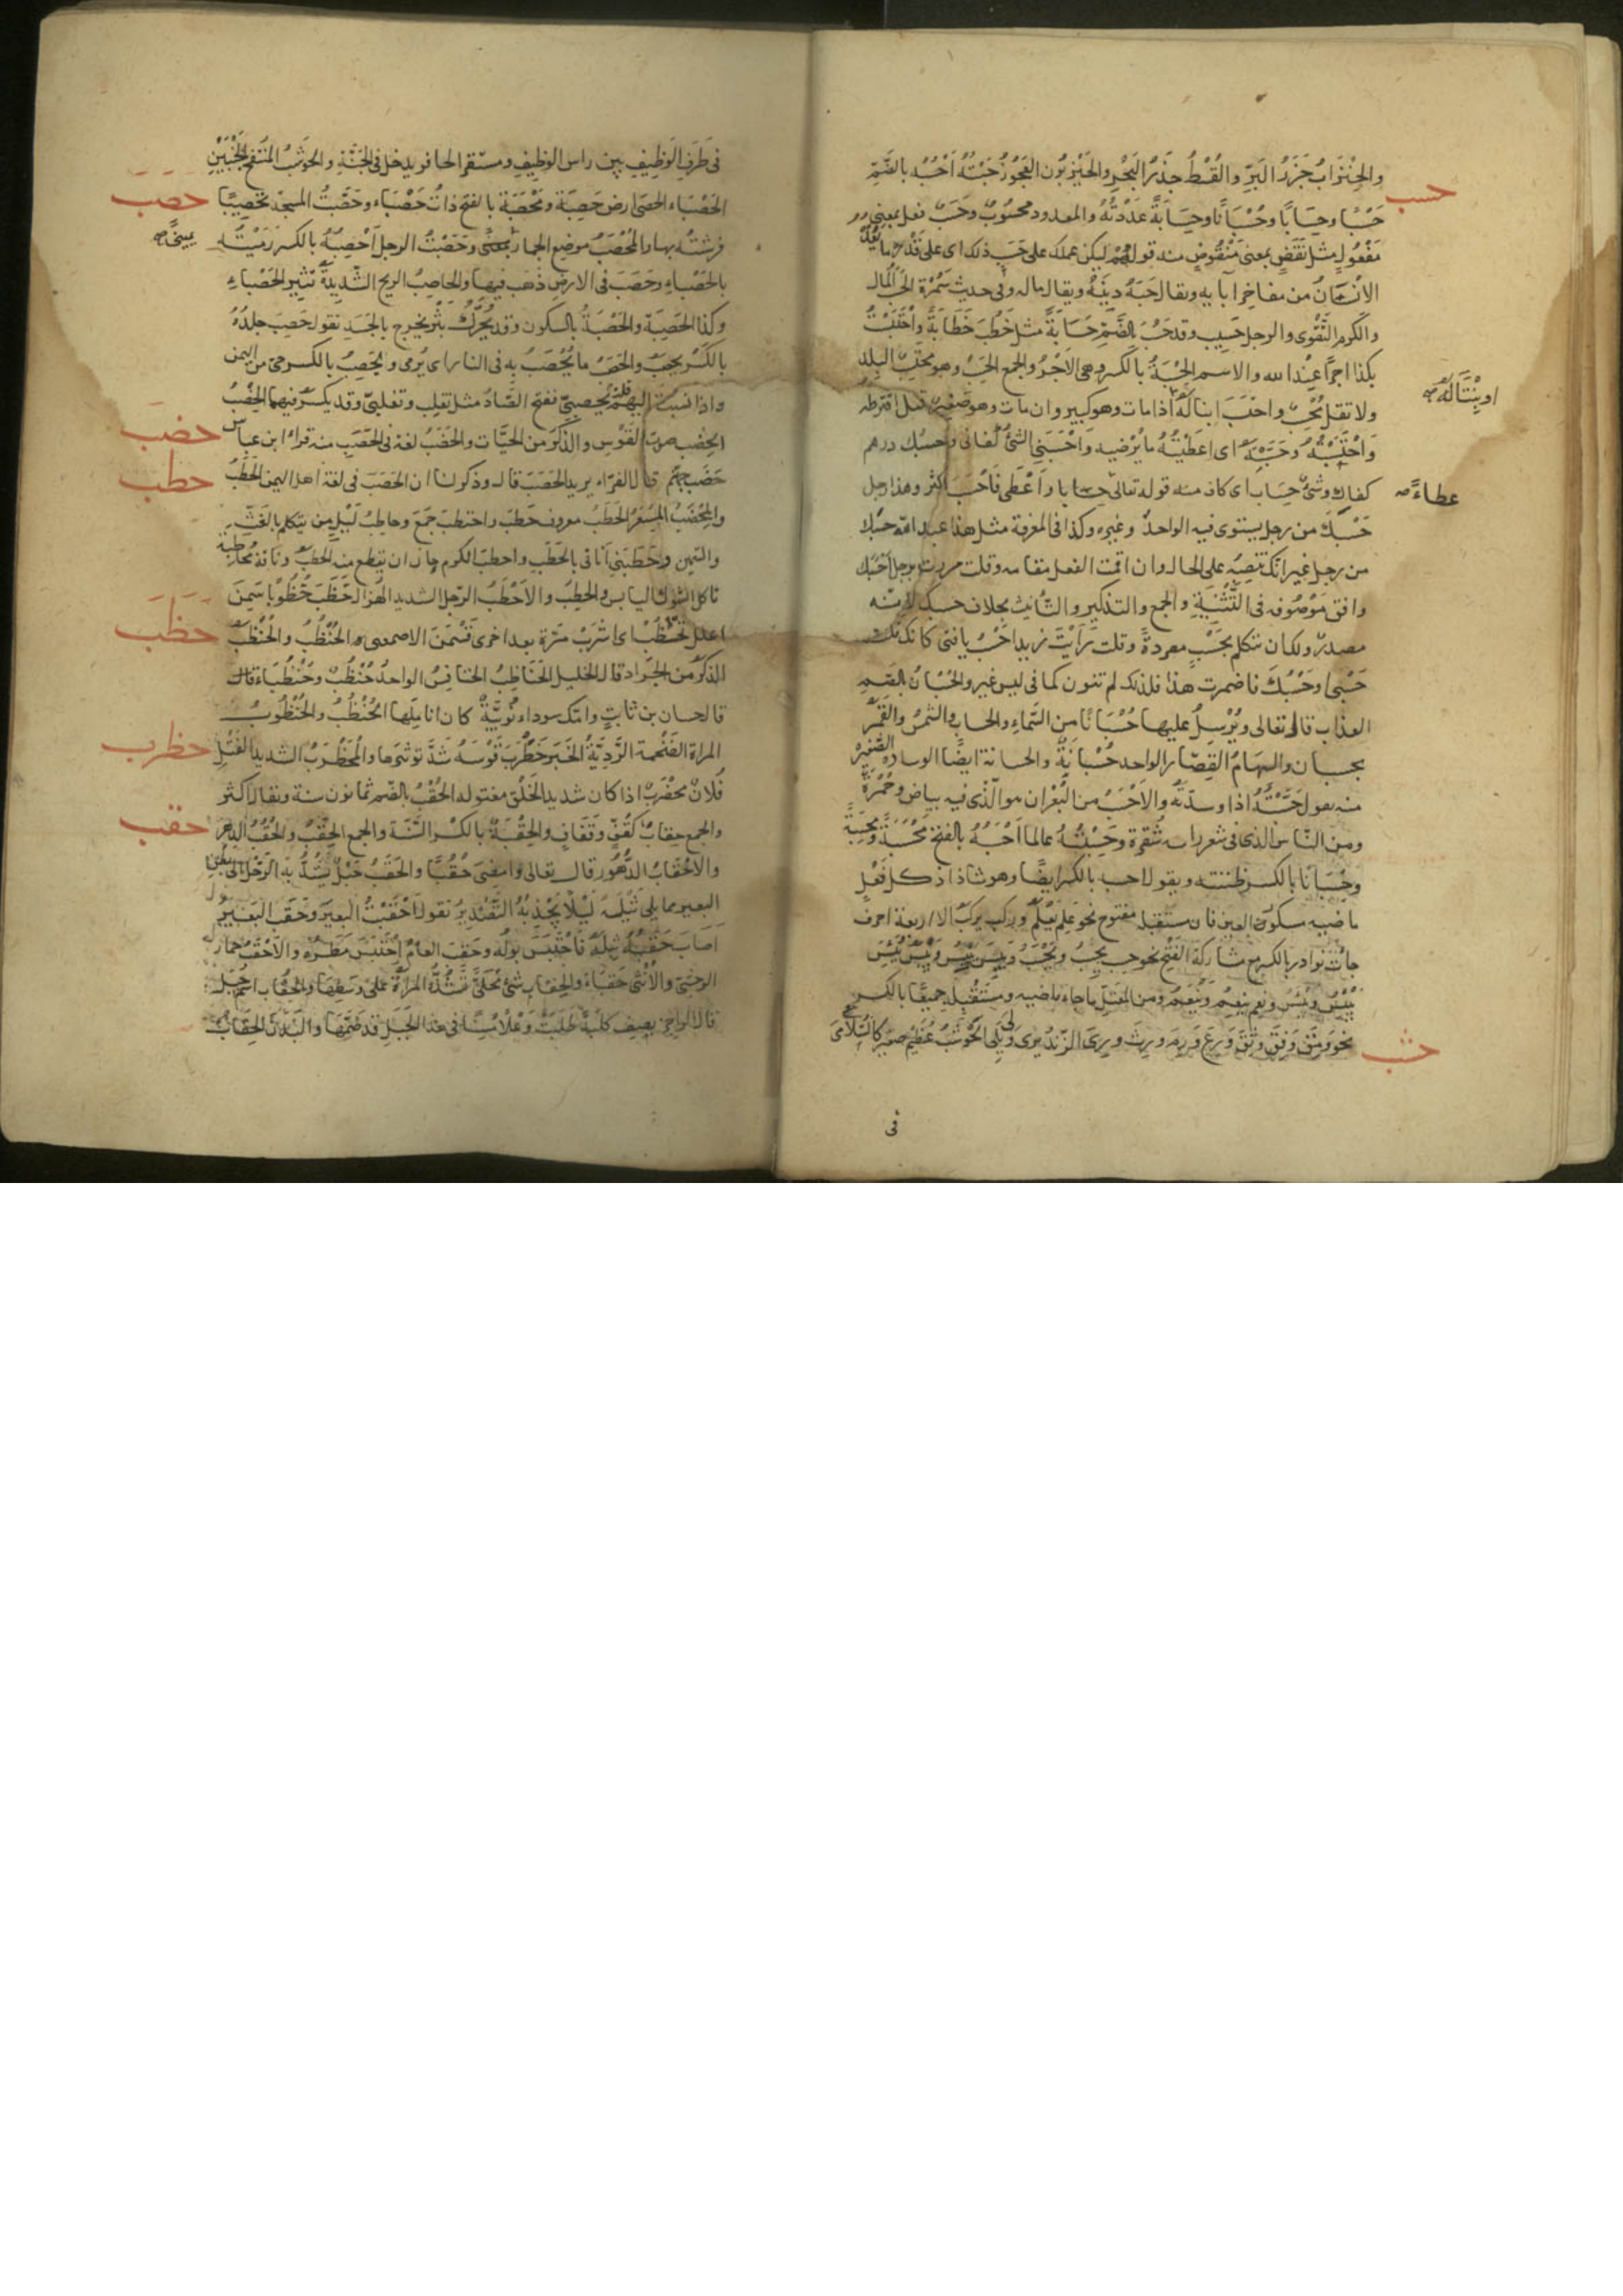 والحِنْزَابُ جَزَرُ البَرِّ والقُسْطُ جَزَرُ البَحْرِ والحَيْزَبُون العَجُوزُ حَسَبْتُهُ أَحْسُبُهُ بالضَّمِّ
حسب
حَسْبًا وحِسَابًا وحُسْبَانًا وحِسَابَةً عَدَدْتُهُ والمعدود محسُوبٌ وحَسَبٌ فعل بمعنى
مَفْعُولٍ مثل نَفَضٍ بمعنى مَنْفُوضٍ منه قولهم ليكن عملك على حَسَبِ ذلك اى على قَدْرِه ما يَعُدُّ
الانْسَانُ من مفاخِرِ آبآيه ويقال حَسَبُهُ دِينُهُ ويقال ماله وفى حديث سَمُرَةَ الحَسَبُ المال
والكرم التَّقْوى والرجل حَسِيب وقد حَسُبَ بالضَّمِّ حَسَابَةً مثل خَطُبَ خَطَابَةً واحْتَسَبْتُ
بكذا اجرًا عِنْدَ الله والاسم الحِسْبَةُ بالكسر وهى الاَجْرُ والجمع الحِسَبُ وهو محتسِبُ البلد
ولا تقل مُحْسِبُ واحتَسَبَ ابنا له اذا مات وهو كبير وان مات وهو صغير قيل افترطه
او بِنْتًا لَهُ صح
وَاحْسَبْتُهُ وحَسَّبْتُهُ اى اعطَيْتُهُ ما يُرْضيه وَاَحْسَبَنِى الشئُ كفانى وحَسْبُك درهم
كفاك وشئٌ حِسَاب اى كاف منه قوله تعالى حسابا واَعْطَى فَاَحْسَبَ اكثر وهذا رجل
عطاءً صح
حَسْبُكَ من رجل يستوى فيه الواحدُ وغيره وكذا فى المعرفة مثل هذا عبد الله حَسْبَك
من رجل غير انك تنصِبُه على الحال وان اقمت الفعل مقامه وقلت مررت برجل اَحْسَبَك
وافق مَوْصُوفه فى التَّثْنِيَةِ والجمع والتذكير والتأنيث بخلاف حسبك لانه
مصدر ولك ان تتكلم بحَسْبُ مفردةً وقلت رَاَيْتُ زيدا حَسْبُ يا فتى كانك قلت
حَسْبِى اوحَسْبُكَ فاضمرت هذا فلذلك لم تنون كما فى ليس غير والحُسْبَانُ بالضم
العذاب قال تعالى ويُرْسِلَ عليها حُسْبَانًا من السَّماءِ والحساب والشمسُ والقَمَرُ
بحسبان والسِهَامُ القِصَار الواحد حُسْبَانَةٌ والحسبانة ايضًا الوساده الصَّغيره
منه يقول حَسَّبْتُهُ اذا وسدّتَه والاَحْسَبُ من البُعْرَان هو الذى فيه بياض وحُمْرَةٌ
ومن النَّاس الذى فى شعر راسه شُقْرة وحَسِبْتُهُ عالما اَحْسَبُهُ بالفتح مَحْسَبَةً ومحسِبَةً
وحِسْبَانًا بالكسر ظننته ويقول احسبه بالكسر ايضًا وهو شاذ اذ كل فَعْلٍ
ماضيه مكسور العين فان مستقبله مفتوح نحو عَلِمَ يَعْلَمُ وركب يركب الا اربعة احرف
جاءت نوادر بالكسر مع مشاركة الفتح نحو حسب يحسِبُ ويَحْسَبُ ويَبِسَ يَيْبِسُ ويَيْبَسُ ويَئِسَ
يَيْئِسُ ويَيْئَسُ ونعم ينعِمُ ويَنْعَمُ ومن المعتلّ ما جاء ماضيه ومستَقْبِله جميعًا بالكسر
نحو وَمِقَ وَفِقَ وثِقَ وَرِعَ وَرِمَ ورِثَ ورِىَ الزندُ يرى وَلِىَ يلِى الحَوْشَبُ عُظَيْمٌ صغير كالسُّلامَى
حشب
فى
فى طَرَفِ الوَظِيفِ بين راس الوظيف ومستقر الحافر يدخل فى الجُبَّةِ والحَوْشَبُ المنتفخُ الجَنْبَيْنِ
حصب
الحَصْبَاء الحصى ارض حَصِبَة ومَحْصَبَة بالفتح ذاتُ حَصْبَاء وحَصَّبْتُ المسجدَ تحصيبًا
فرشتُه بها والمُحَصَّبُ موضع الجمار بمنى وحَصَبْتُ الرجلَ اَحْصِبُهُ بالكسر رَمَيْتُهُ
بالحَصْباءِ وحَصَبَ فى الارض ذَهَبَ فيها والحاصِبُ الريح الشديدةُ تثير الحَصْباءَ
وكذا الحَصِبَة والحَصْبَةُ بالسكون وقد يُحَرَّكُ بَثْرٌ يخرج بالجَسَدِ تقول حَصِبَ جلدُهُ
بالكَسْر يحصَبُ والحَصَبُ ما يُحْصَبُ بِهِ فى النار اى يُرمى ويَحصِبُ بالكسر حى من اليمن
واذا نسبْتَ اليهم قلت يَحْصَبِىّ بفتح الصَّادُ مثل تغلِب وتَغْلَبىّ وقد يكسر فيهما
حضب
الحِضب صوت القَوْس والذَّكَرُ من الحَيَّات والحَضَبُ لغة فى الحَصَبِ منه قرأ ابن عباس
حَضَب جهنم قال الفرّاء يريد الحَصَبَ قال وذكر لنا ان الحَضَبَ فى لغة اهل اليمن الحَطَبُ
حطب
والمِحْضَبُ المِسْعَرُ الحَطَبُ معروف حَطَبَ واحتطبَ جَمَعَ وحاطِبُ لَيْلٍ من يتكلم بالغَثِّ
والثمين وحَطَبَنِى اتانى بالحَطَبِ واحطبَ الكرم حان ان يقطع منه الحطبُ وناقة مُحَاطِبَة
تاكل الشوك اليابس والحَطِبُ والاَحْطَبُ الرّجل الشديد الهُزَالِ حَظَبَ حُظُوْبًا سَمِنَ
حظب
اعلل تحظُبْ اى اشْرَبْ مَرّة بعد اخرى تَسْمَنْ الاصمعى الحُنْظُبُ والحُنْظَبُ
الذكر من الجَرَاد قال الخليل الحَنَاظِبُ الخنافِسُ الواحدُ حُنْظُبٌ وحُنْظُبَاءُ
قال حسان بن ثابتٍ وامّك سوداء نُوبِيَّةٌ كان اناملَها الحُنْظُبُ والحُنْظُوبُ
المراة الضَّخْمة الرَّدِيَّةُ الخَبَر حَظْرَبَ قَوْسَهُ شَدَّ توتيرها والمُحَظْرَبُ الشديد الفَتْلِ
حظرب
فُلانٌ محظْرَبٌ اذا كان شديد الخَلْق مفتوله الحُقْبُ بالضم ثمانون سنة ويقال اكثر
حقب
والجمع حِقابٌ كَقُفٍّ وقِفَافٍ والحِقْبَةُ بالكسر السَّنَة والجمع الحِقَبُ والحُقُبُ الدهر
والاحْقَابُ الدُّهُور قال تعالى او امضِىَ حُقُبًا والحَقَبُ حَبْلٌ يُشَدُّ بِهِ الرَّحْل الى بطن
البعير مما يلى ثِيْلَهُ لِيَلاَّ يَجْذِبَهُ التَّصْدِيرُ تقول اَحْقَبْتُ البعيرَ وحَقِبَ البَعِيرُ
اَصَابَ حَقَبُهُ ثِيلَهُ فاحتَبَسَ بَولُه وحَقِبَ العامُ اِحْتَبَسَ مَطَرُه والاَحْقَبُ حمارُ
الوحشِ والاُنْثى حَقْبَاءُ والحِقاب شئٌ مُحَلَّى تَشُدُّهُ المراةُ على وَسَطِها والحِقَاب اسم جَبل
قال الراجز يصِف كلبةً طَلَبَتْ وَعْلاً مُسِنًّا فى هذا الجَبَلِ قد ضَمَّهَا والبَدَنَ الحِقَابُ